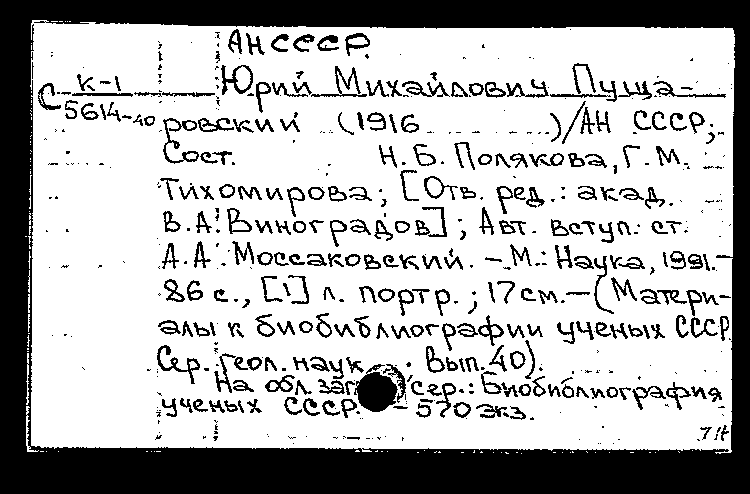 АН СССР.
К-1
С 5614-40
Юрий Михайлович Пуща-
ровский (1916 )/АН СССР;
Сост. Н.Б. Полякова, Г.М.
Тихомирова; [Отв. ред.: акад.
В.А. Виноградов]; Авт. вступ. ст.
А.А. Моссаковский. – М.: Наука, 1991.–
86 с., [1] л. портр.; 17см.–(Матери-
алы к биобиблиографии ученых СССР
Сер. геол. наук. Вып. 40).
На обл. заг сер.: Биобиблиография
ученых СССР. – 570 экз.